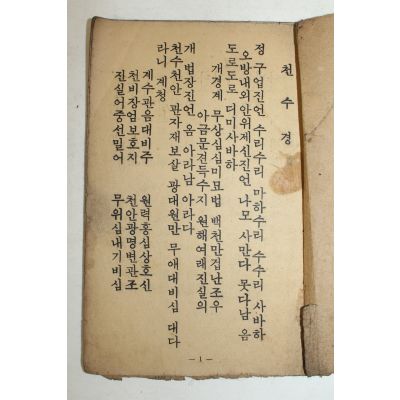 천수경
정구업진언 수리수리 마하수리 수수리 사바하
오방내외안위제신진언 나모 사만다 못다남 옴
도로도로 디미사바하
개경계 무상심심미묘법 백천만겁난조우
아금문견득수지 원해여래진실의
개법장진언 옴 아라남 아라다
천수천안 관자재보살 광대원만 무애대비심 대다
라니 계청
계수관음대비주 원력홍심상호신
천비장엄보호지 천안광명변관조
진실어중선밀어 무위심내기비심
- 1 -